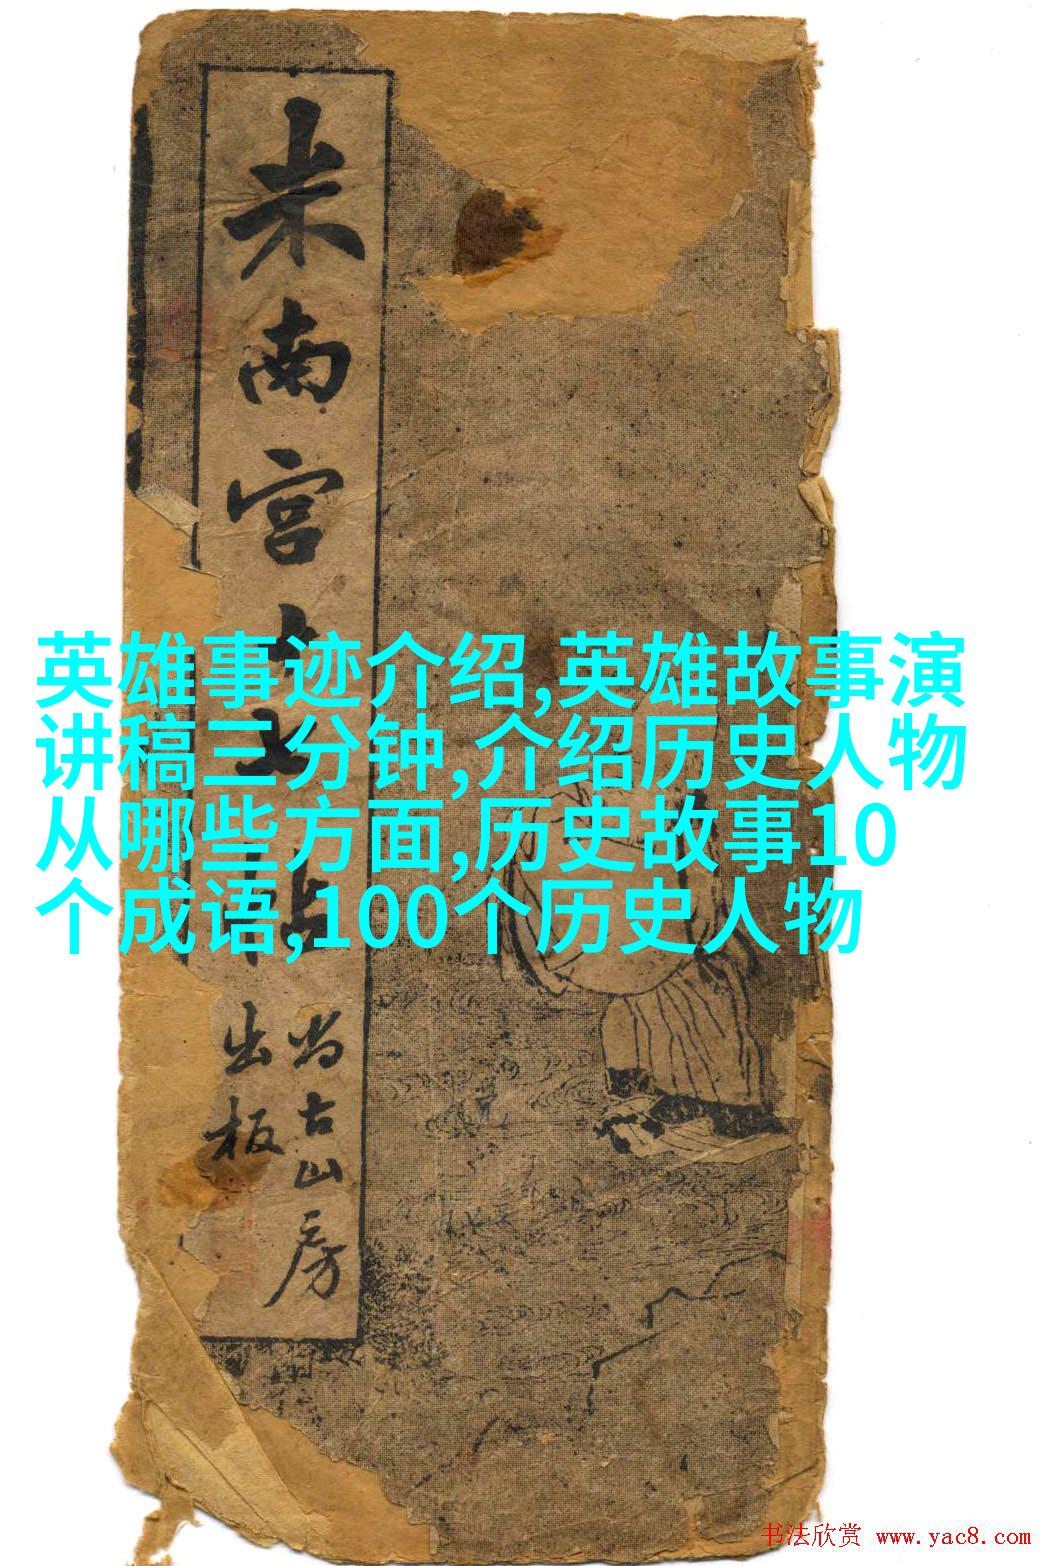 米南宫十七帖
尚古山房
出板
英雄事迹介绍,英雄故事演
讲稿三分钟,介绍历史人物
从哪些方面,历史故事10
个成语,100个历史人物
书法欣赏 www.yac8.com